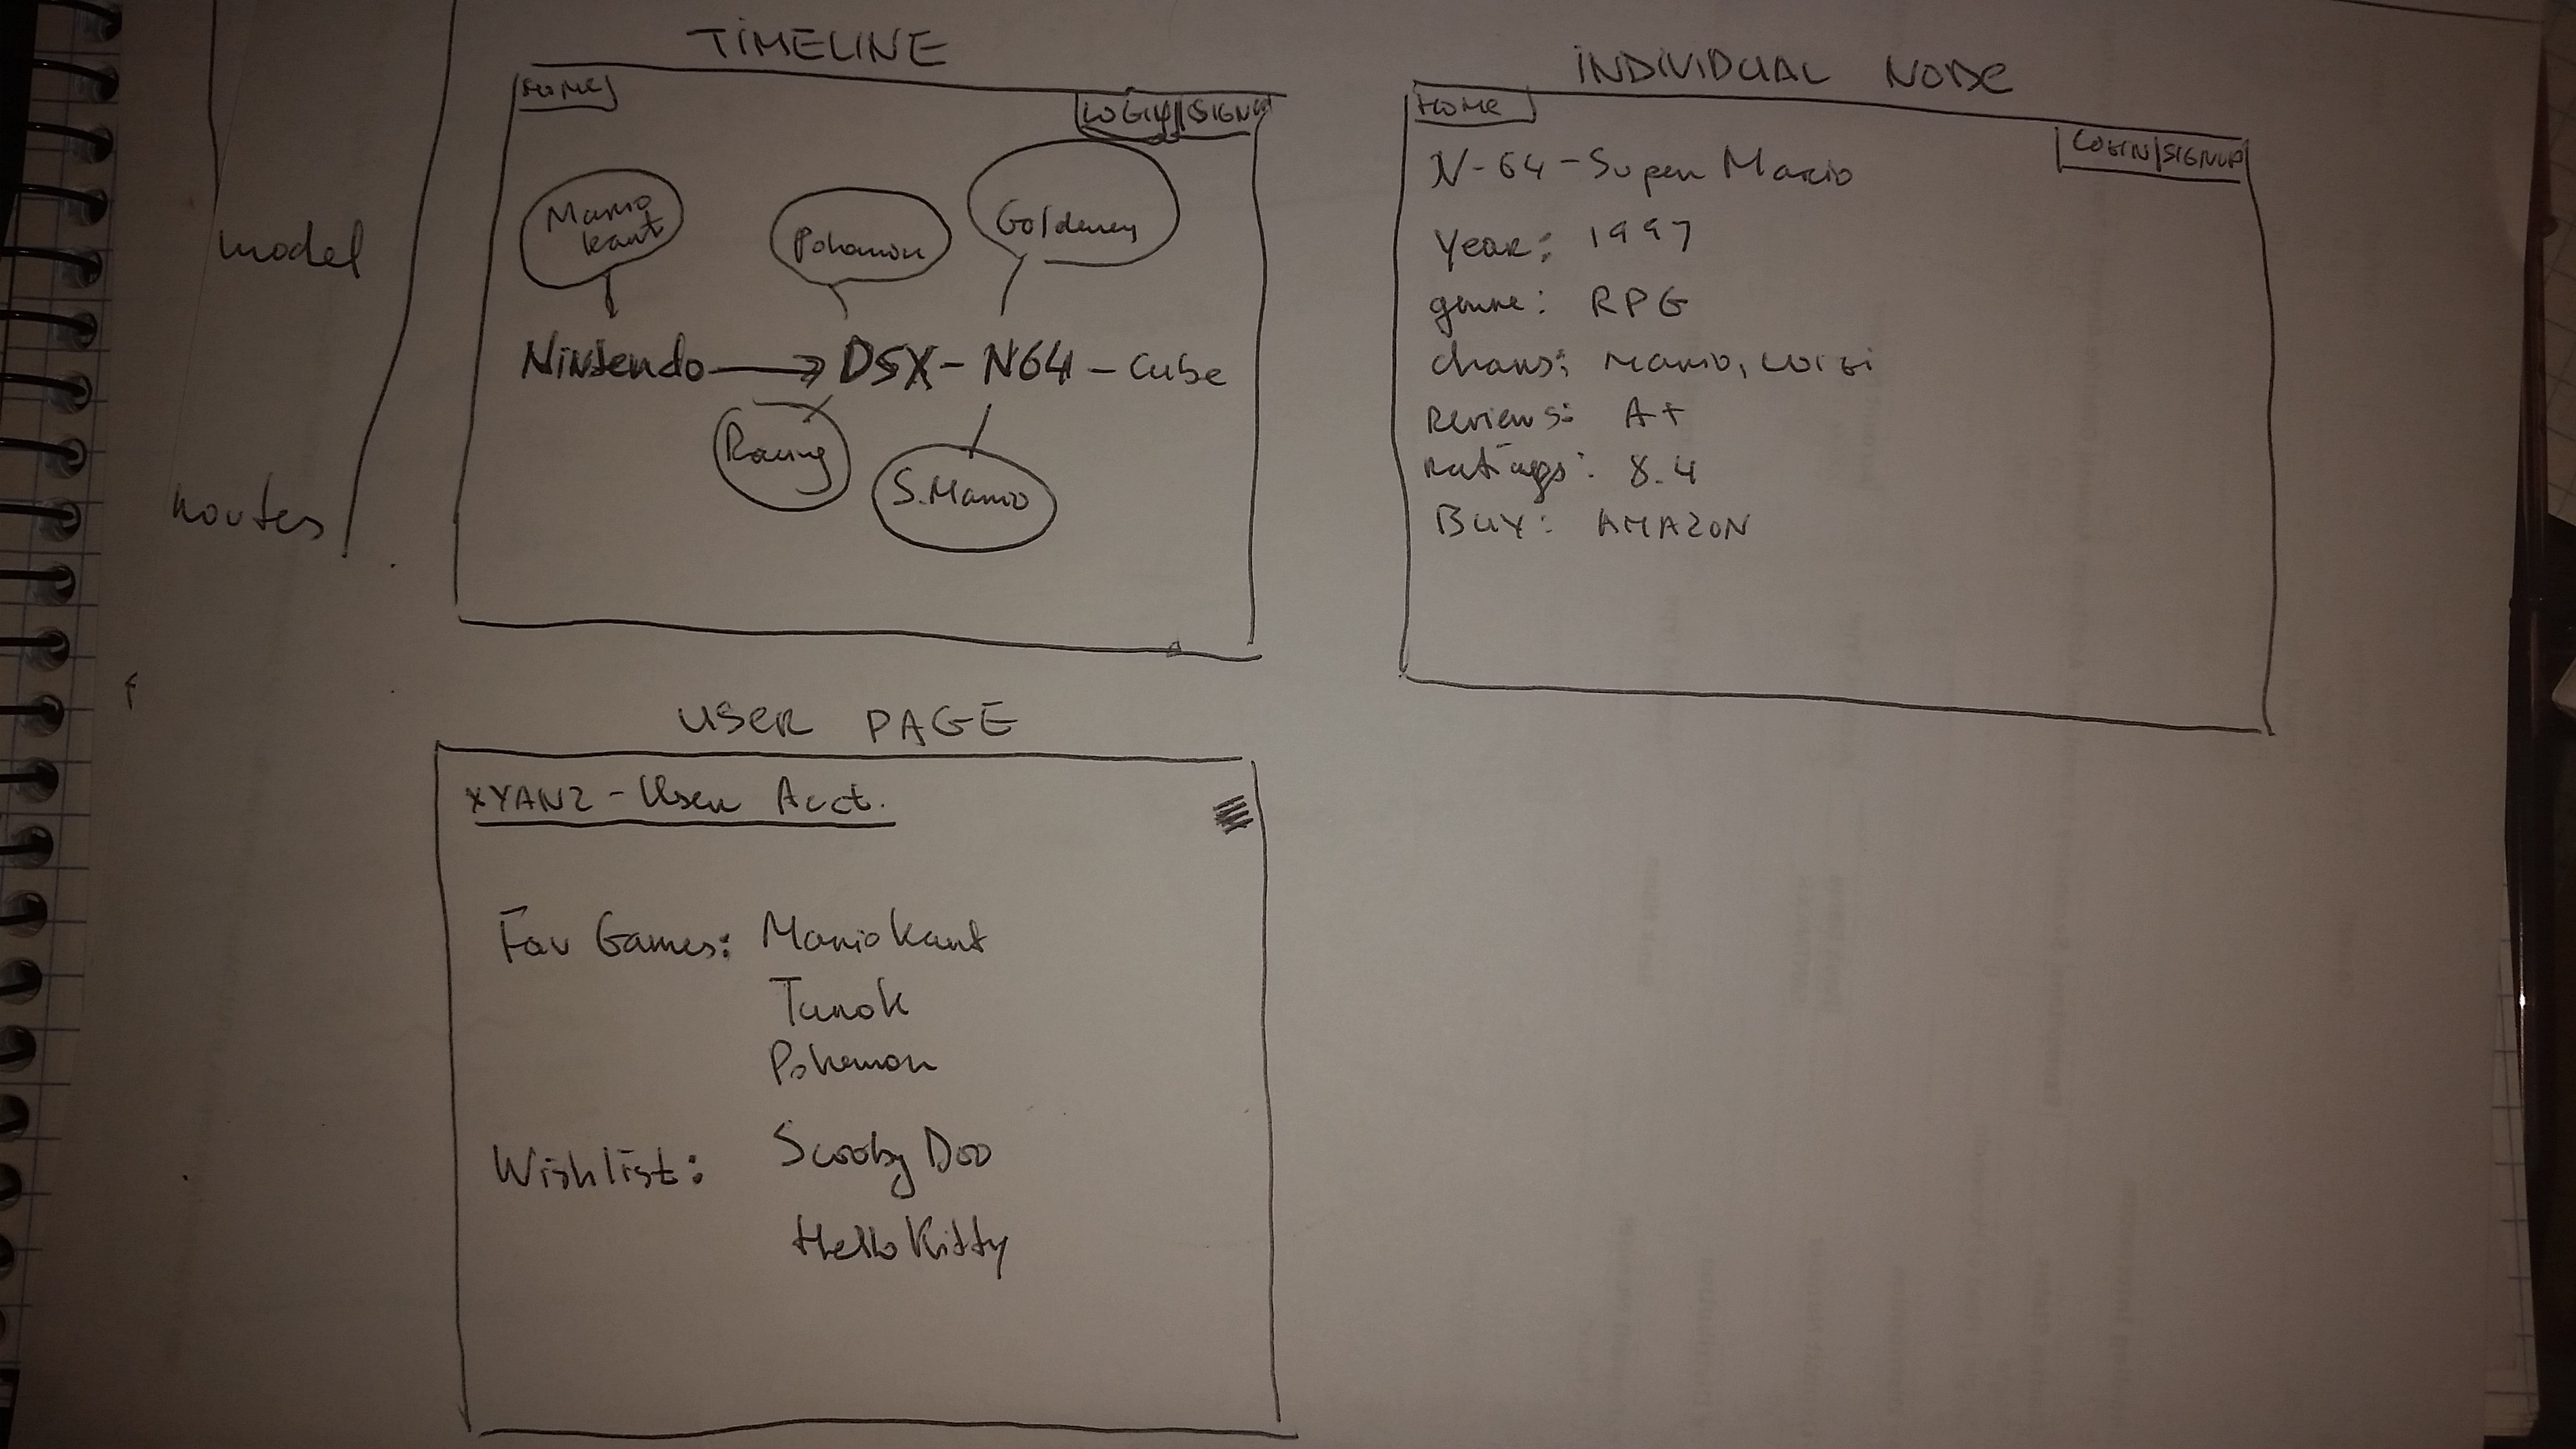 TIMELINE
HOME
LOGIN|SIGNUP
Mario
kart
Pokemon
Goldeney
Nintendo → DSX - N64 - Cube
Racing
S.Mario
INDIVIDUAL NODE
HOME
LOGIN|SIGNUP
N-64 - Super Mario
Year: 1997
genre: RPG
chars: Mario, Luigi
Reviews: A+
ratings: 8.4
BUY: AMAZON
model
routes
USER PAGE
XYANZ - User Acct.
Fav Games: Mariokart
Turok
Pokemon
Wishlist: Scooby Doo
Hello Kitty